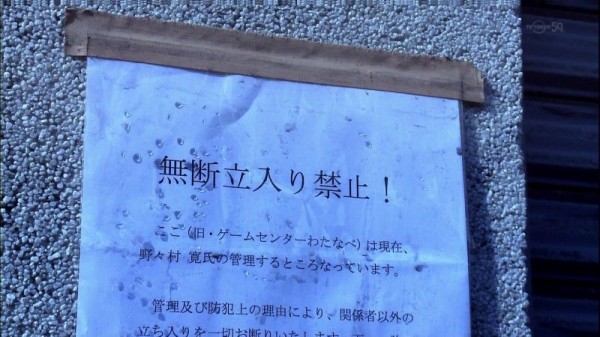 無断立入り禁止！
ここ（旧・ゲームセンターわたなべ）は現在、
野々村 寛氏の管理するところなっています。
管理及び防犯上の理由により、関係者以外の
立ち入りを一切お断りいたします。万一